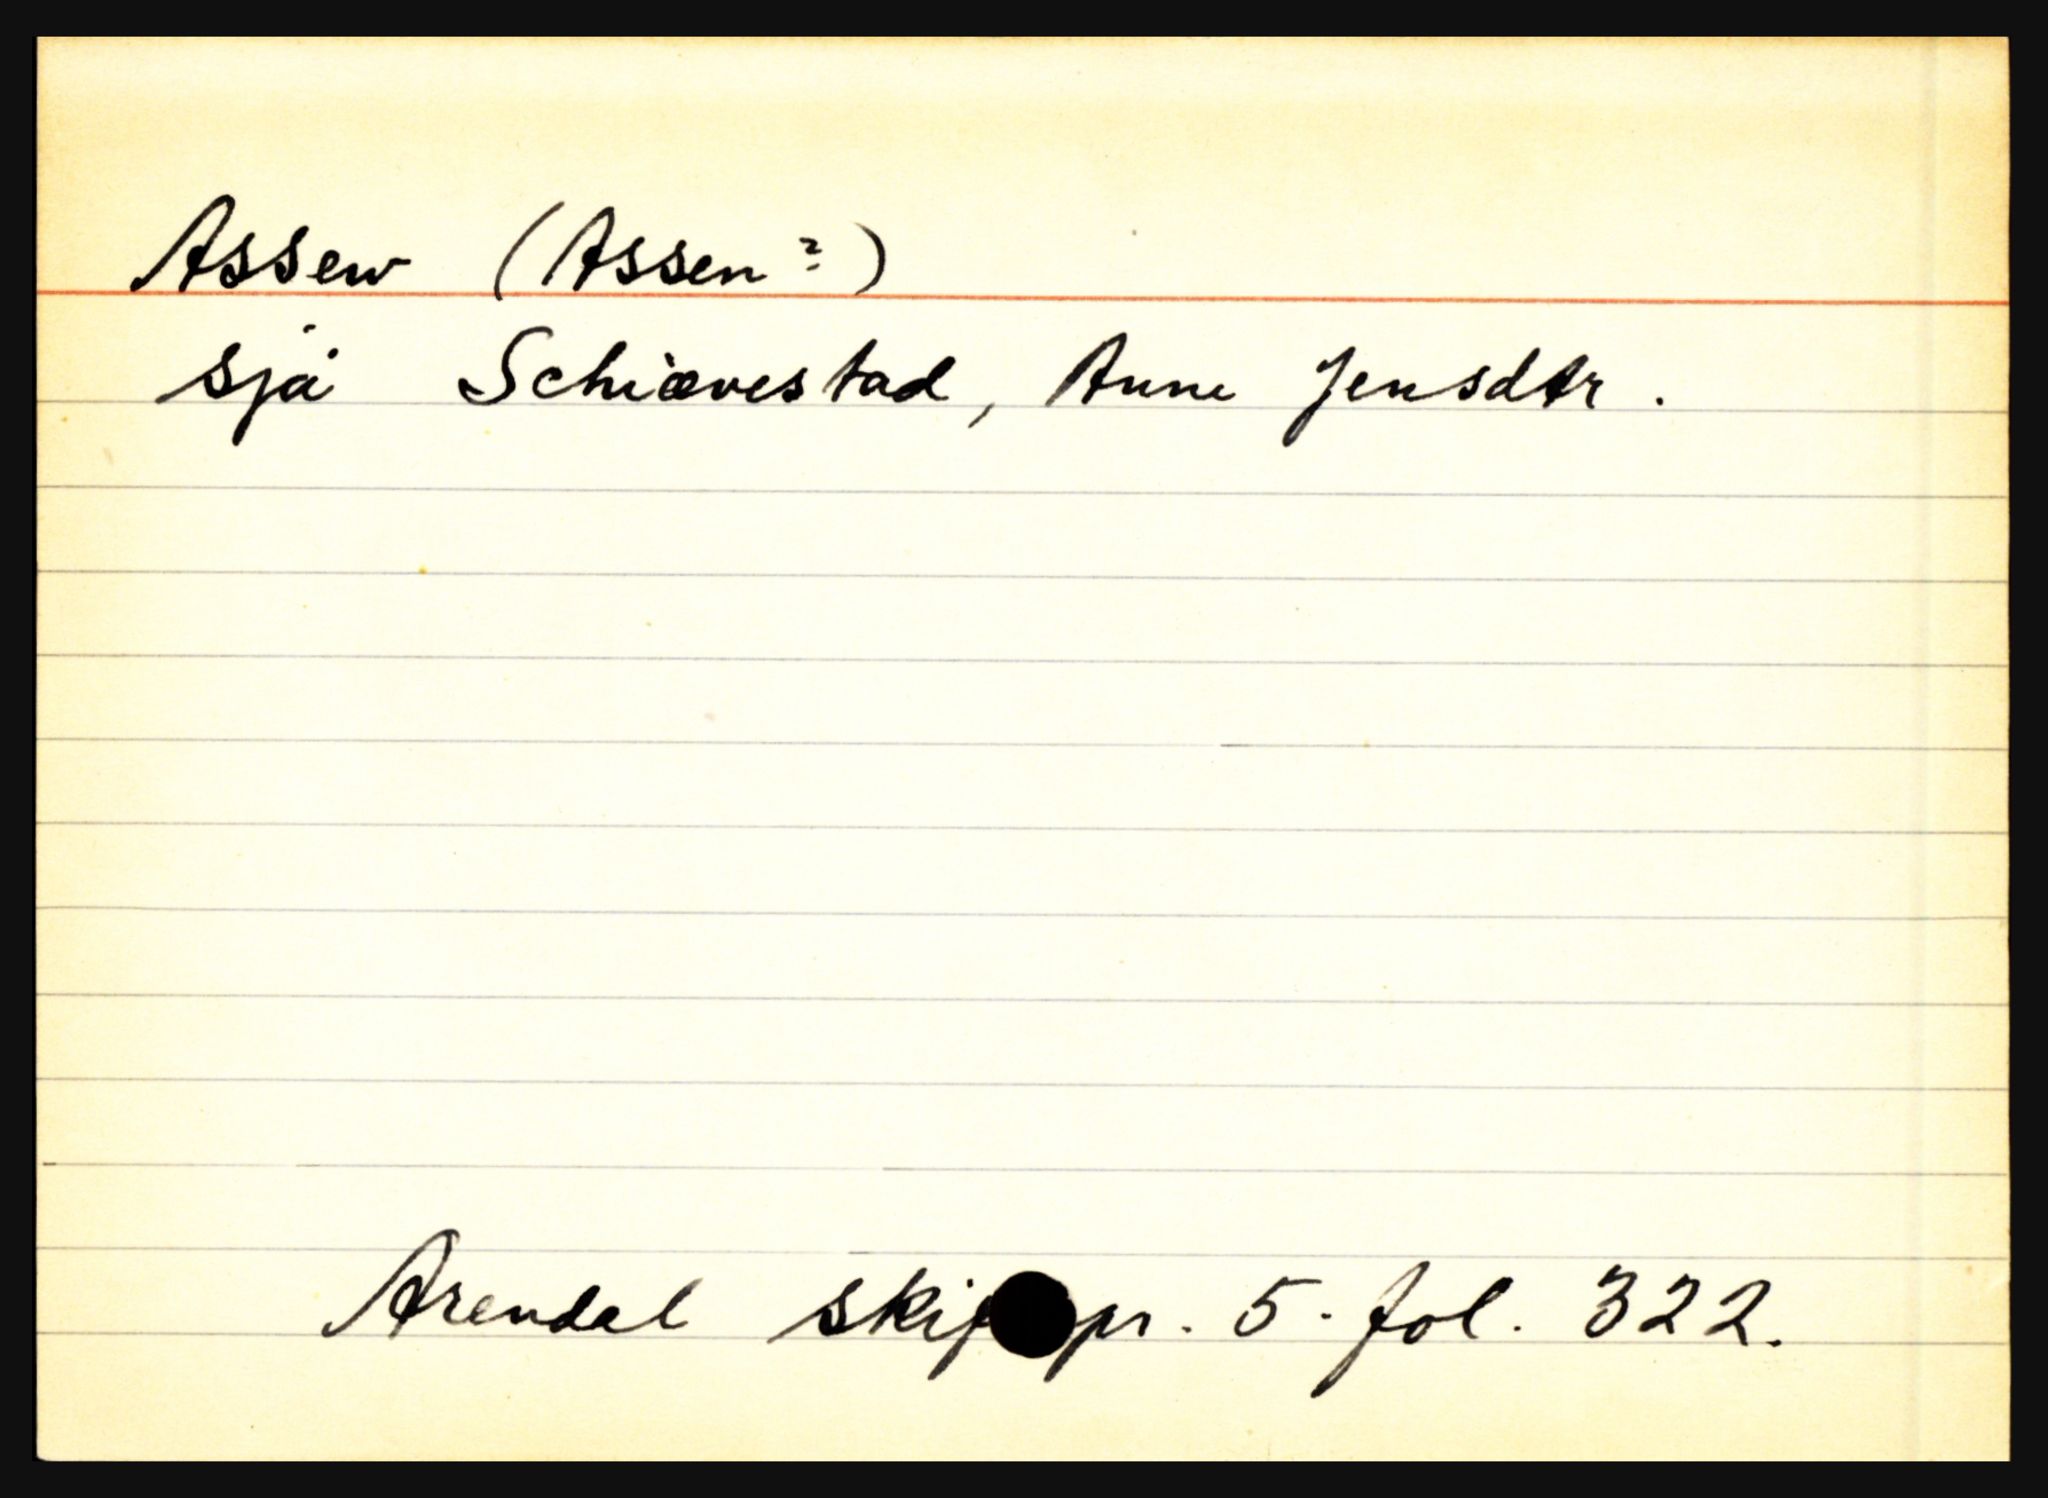 Assew (Assen?)
sjå Schiævestad, Anne Jensdtr.
Arendal skif pr. 5. fol. 322.